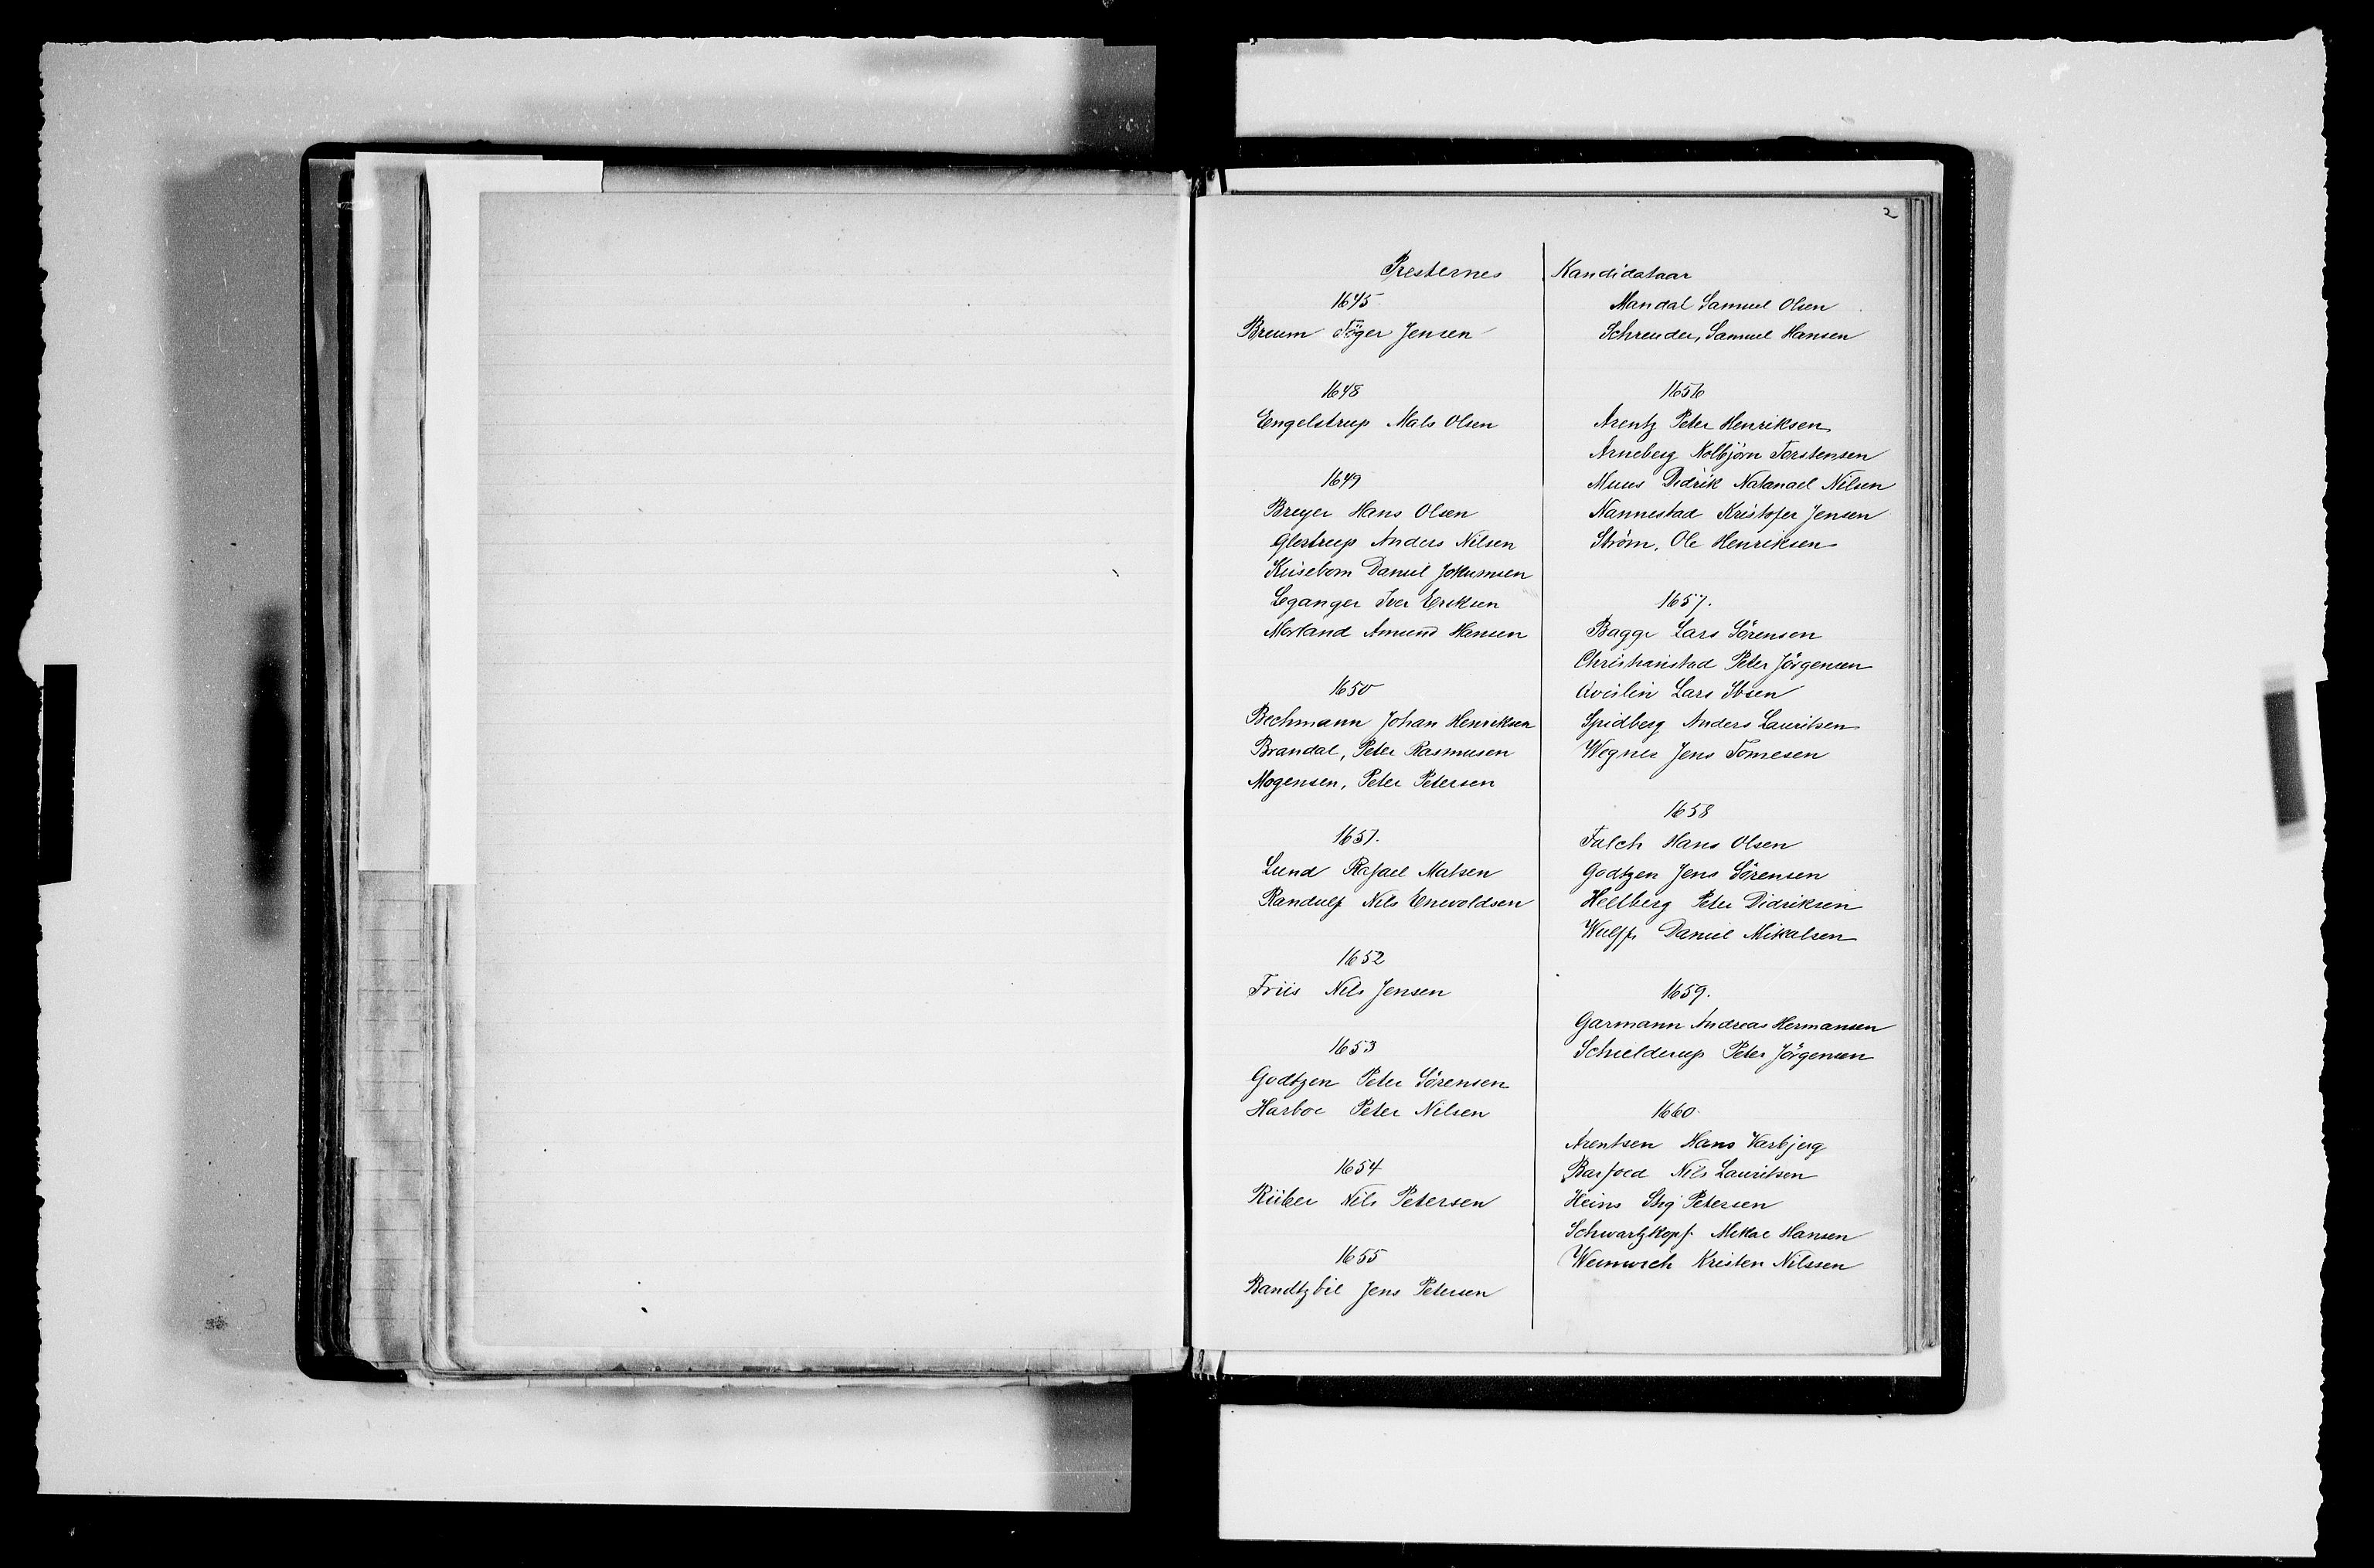 2
Presternes Kandidataar
1645
Breum Töger Jensen
1648
Engelstrup Mats Olsen
1649
Breyer Hans Olsen
Glostrup Anders Nilsen
Daniel Jokumsen
Leganger Iver Eriksen
Morland Amund Hansen
1650
Bechmann Johan Henriksen
Brandal, Peter Rasmusen
Mogensen, Peter Petersen
1651.
Lund Rafael Matsen
Randulf Nils Enevoldsen
1652
Friis Nils Jensen
1653
Godtzen Peter Sörensen
Harboe Peter Nilsen
1654
Rüber Nils Petersen
1655
Bandtzbil Jens Petersen
Mandal Samuel Olsen
Schreuder, Samuel Hansen
1656
Arentz Peter Henriksen
Arneberg Kolbjörn Torstensen
Muus Didrik Natanael Nilsen
Nannestad Kristofer Jensen
Ström, Ole Henriksen
1657.
Bagge Lars Sörensen
Christianstad Peter Jörgensen
Qvislin Lars Ibsen
Spidberg Anders Lauritsen
Wegner Jens Tomesen
1658
Falch Hans Olsen
Godtzen Jens Sörensen
Hellberg Peter Didriksen
Wulff Daniel Mikalsen
1659.
Garmann Andreas Hermansen
Schielderup Peter Jörgensen
1660.
Arentsen Hans Varbjerg
Barfoed Nils Lauritsen
Heins Stig Petersen
Schwartzkopf Mikal Hansen
Weinwich Kristen Nilssen